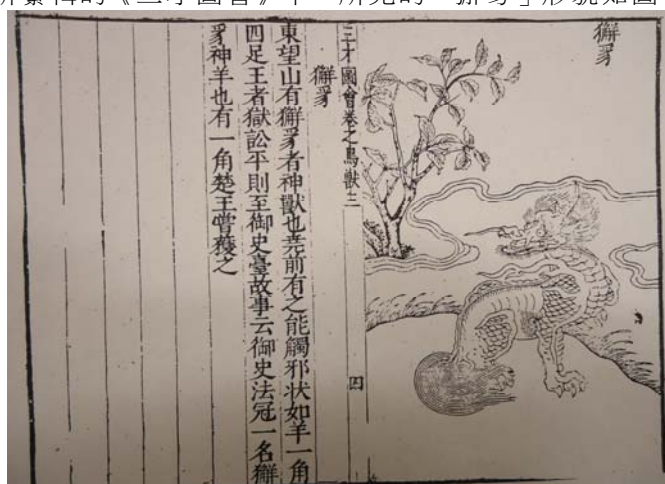 的《三才圖會》中,所見的「獬豸」形貌如圖
獬豸
三才圖會卷之鳥獸三
四
獬豸
東望山有獬豸者神獸也尭前有之能觸邪状如羊一角
四足王者獄訟平則至御史臺故事云御史法冠一名獬
豸神羊也有一角楚王嘗獲之